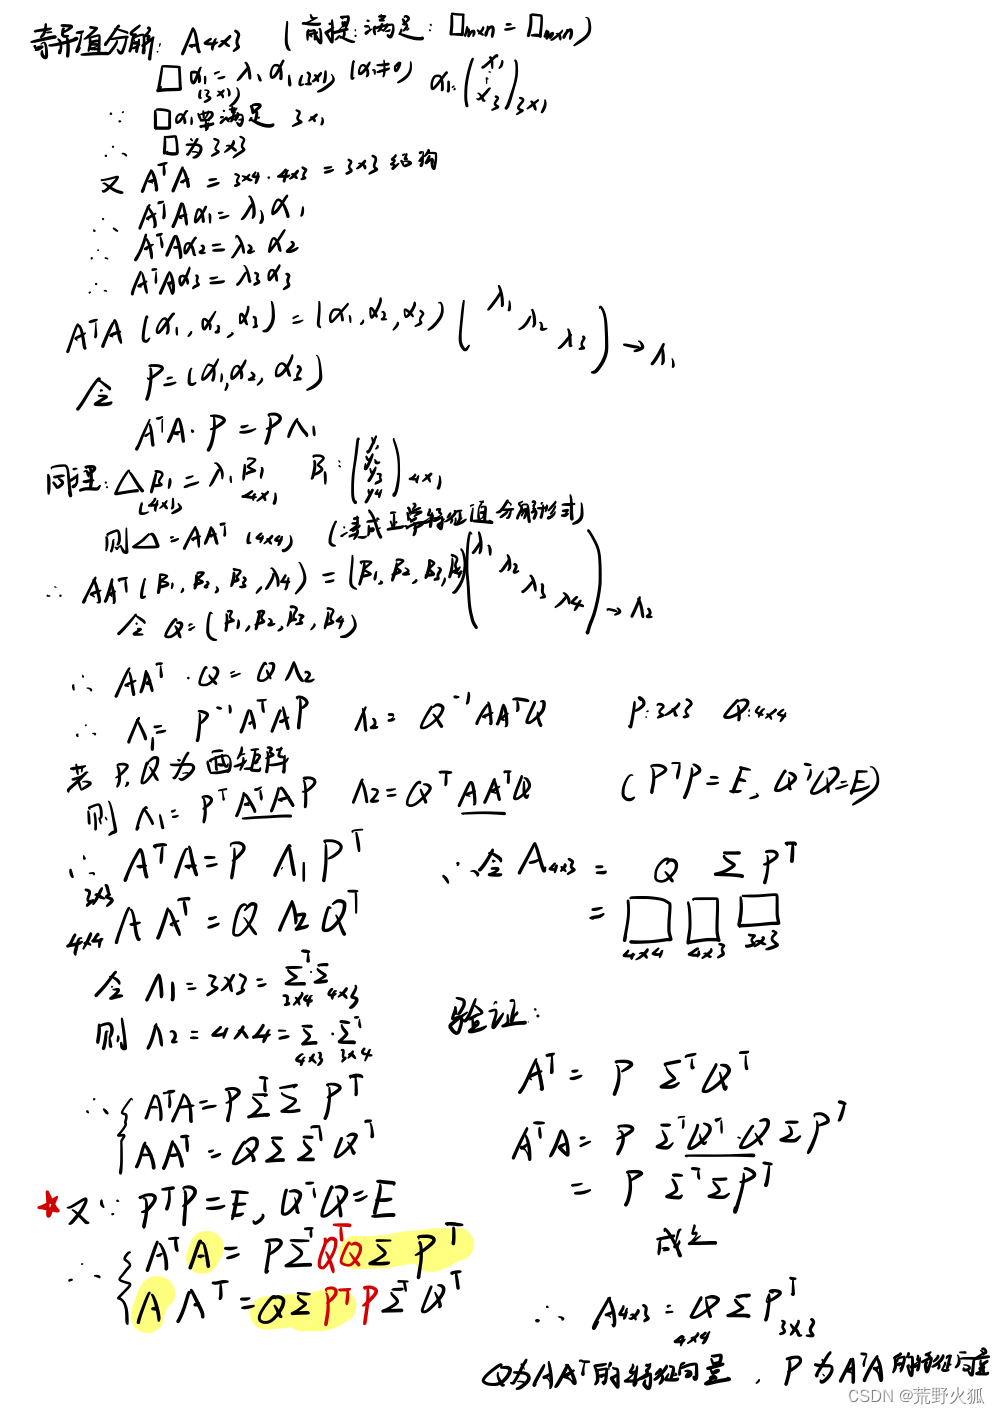 奇异值分解: A4×3 (前提:满足: □m×n = □m×n)
□α1 = λ1 α1(3×1) (α1≠0) α1: (x1 ⋮ x3)3×1
(3×1)
∵ □α1要满足 3×1
∴ □为3×3
又 AᵀA = 3×4 · 4×3 = 3×3 结构
∴ AᵀAα1 = λ1 α1
∴ AᵀAα2 = λ2 α2
∴ AᵀAα3 = λ3 α3
AᵀA (α1, α2, α3) = (α1, α2, α3) (λ1 λ2 λ3) → Λ1
令 P = (α1, α2, α3)
AᵀA · P = PΛ1
同理: △β1 = λ1 β1 β1: (y1 y2 y3 y4)4×1
(4×1) 4×1
则△ = AAᵀ (4×4) (凑成正常特征值分解形式)
∴ AAᵀ (β1, β2, β3, λ4) = (β1, β2, β3, β4) (λ1 λ2 λ3 λ4) → Λ2
令 Q = (β1, β2, β3, β4)
∴ AAᵀ · Q = QΛ2
∴ Λ1 = P⁻¹AᵀAP Λ2 = Q⁻¹AAᵀQ P:3×3 Q:4×4
若 P,Q为酉矩阵
则 Λ1 = PᵀAᵀAP Λ2 = QᵀAAᵀQ (PᵀP = E, QᵀQ = E)
∴ AᵀA = P Λ1 Pᵀ
3×3
4×4 AAᵀ = Q Λ2 Qᵀ
令 Λ1 = 3×3 = Σᵀ·Σ
3×4 4×3
则 Λ2 = 4×4 = Σ·Σᵀ
4×3 3×4
∴ { AᵀA = PΣᵀΣ Pᵀ
AAᵀ = QΣΣᵀQᵀ
★ 又∵ PᵀP = E, QᵀQ = E
∴ { AᵀA = PΣᵀQᵀQΣPᵀ
AAᵀ = QΣPᵀPΣᵀQᵀ
∴令 A4×3 = Q Σ Pᵀ
= □ □ □
4×4 4×3 3×3
验证:
Aᵀ = P ΣᵀQᵀ
AᵀA = P ΣᵀQᵀ·QΣPᵀ
= P ΣᵀΣPᵀ
成立
∴ A4×3 = QΣPᵀ3×3
4×4
Q为AAᵀ的特征向量 , P为AᵀA的特征向量
CSDN @荒野火狐